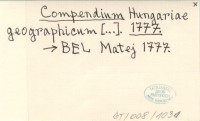 Compendium Hungariae
geographicum [...]. 1777.
→ BEL Matej 1777.
BT/008/1031